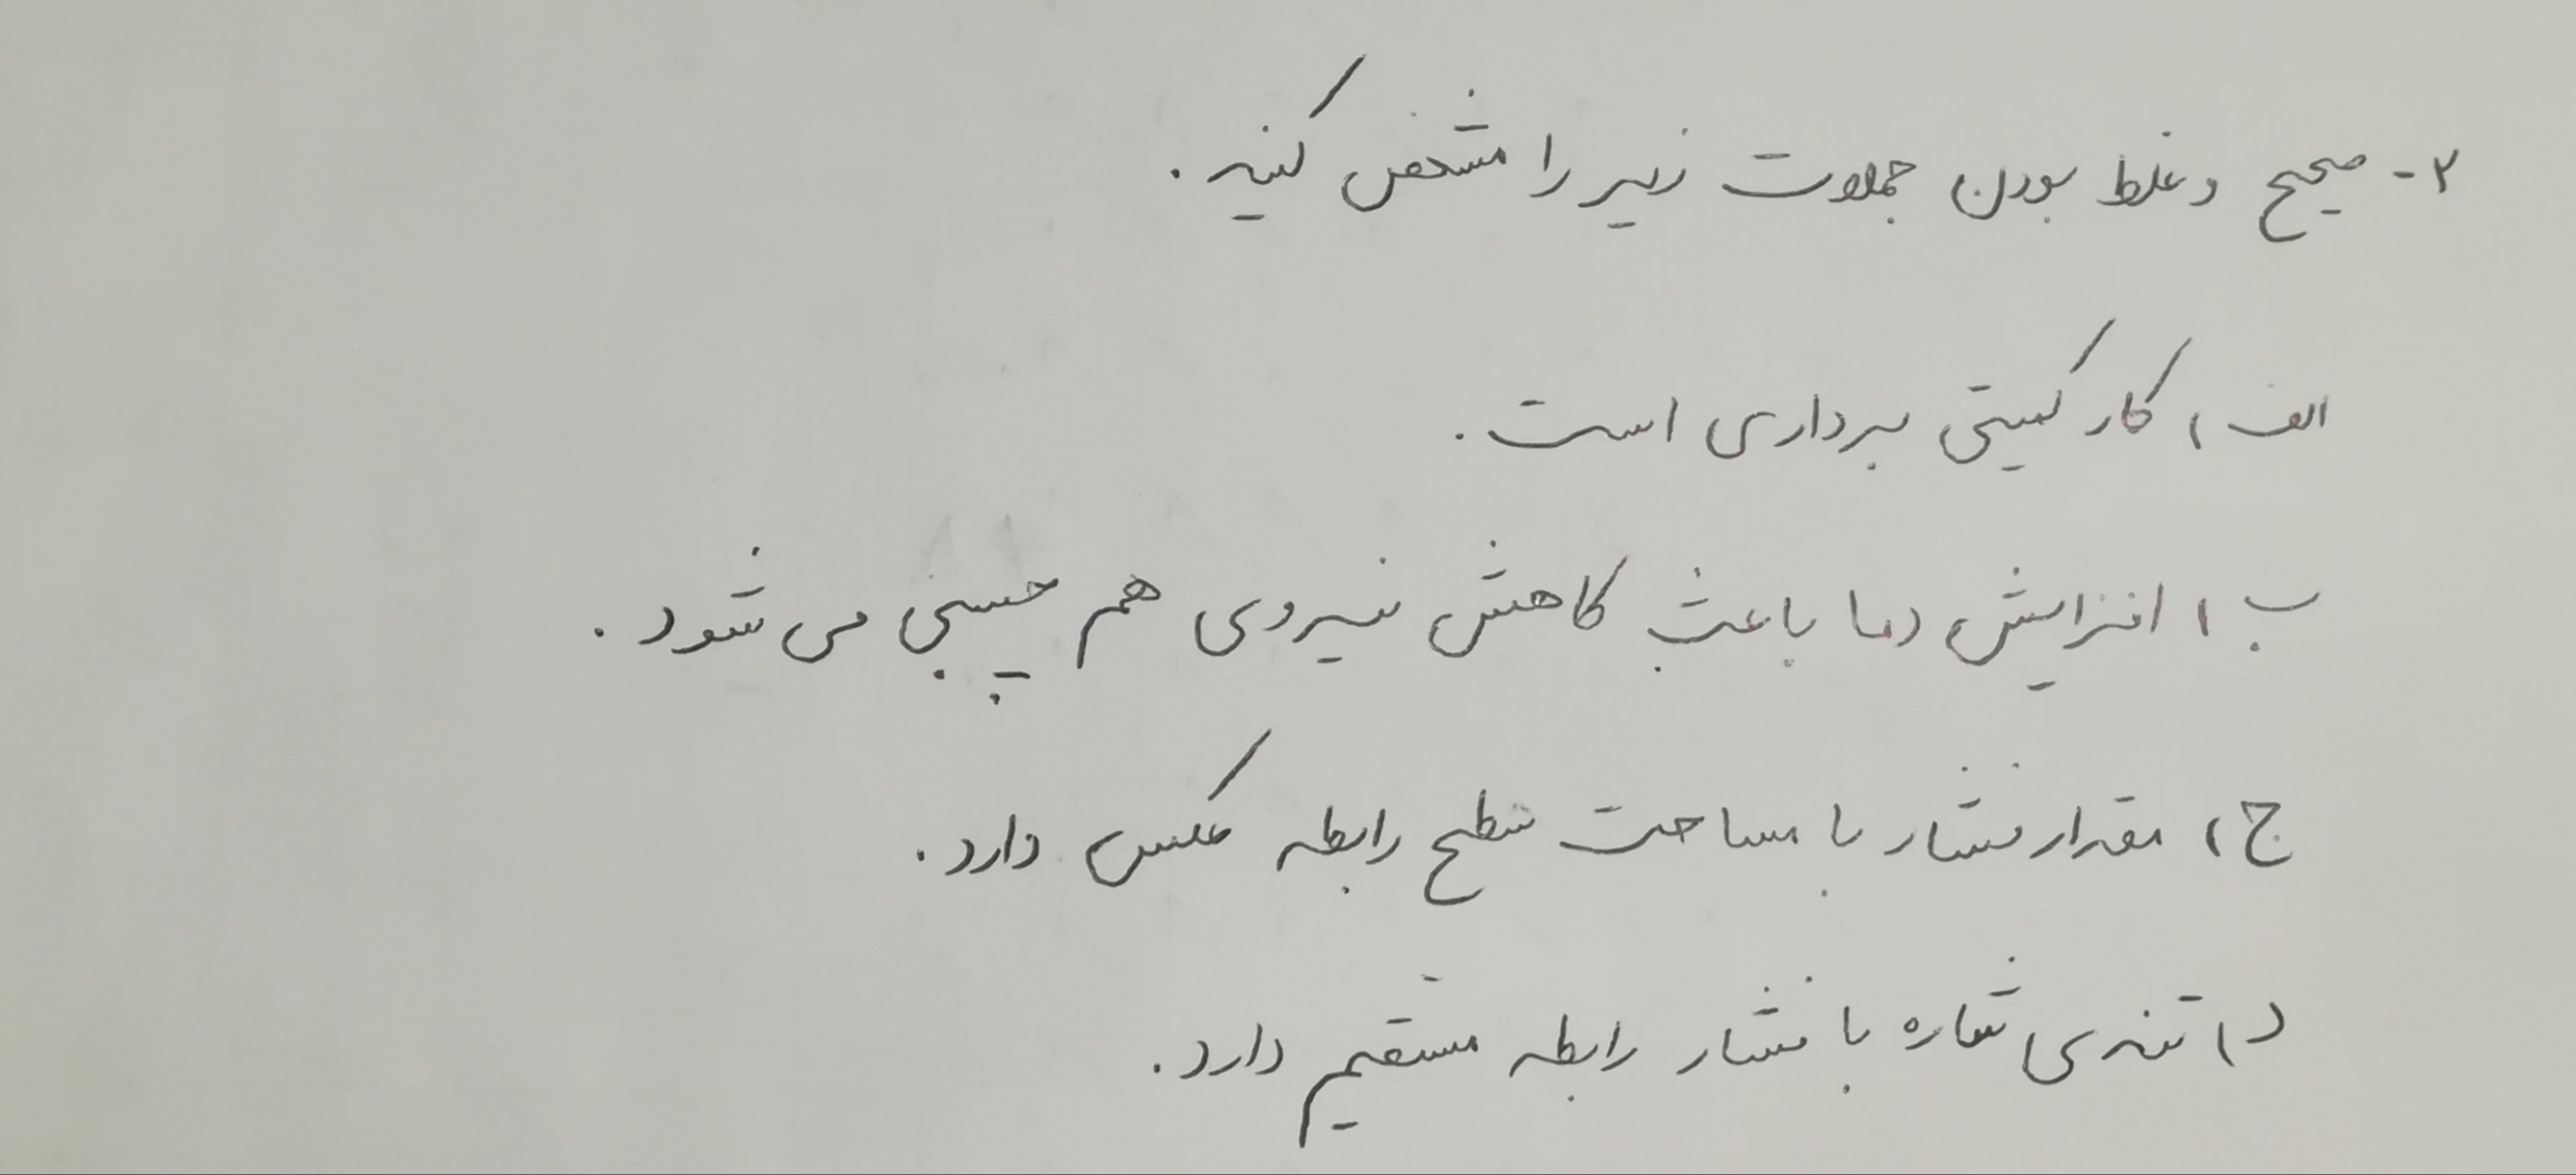 ۲- صحیح و غلط بودن جملات زیر را مشخص کنید.
الف) کار کمیتی برداری است.
ب) افزایش دما باعث کاهش نیروی هم چسبی می شود.
ج) مقدار فشار با مساحت سطح رابطه عکس دارد.
د) تندی شاره با فشار رابطه مستقیم دارد.